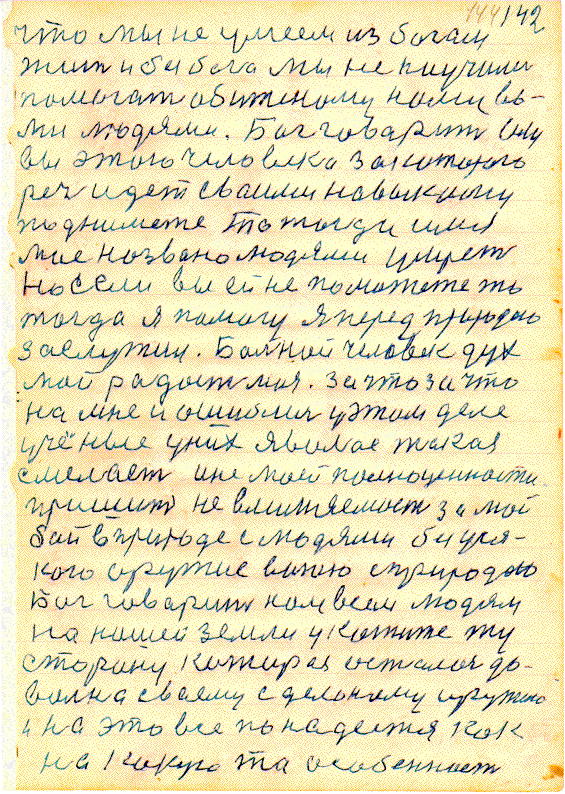 144/142
что мы не умеем из богам
жит и би бога мы не научили
помогат обиженому нами вь-
ми людями. Бог говарит они
вы этого человека за которого
реч идет своими навыками
поднимете то тогди имя
мое названо людями умрет
но если вы ей не поможете то
тогда я помогу я перед природою
заслужил. Болной человек дух
мой радост моя. За что за что
на мне и ошиблис у этом деле
учёные у них явилос такая
смелост мне моей полноценности
пришит не вменяемост за мой
бой в природе с людями без уся-
кого оружие воюю с природою
Бог говарит нам всем людям
на нашей земли укажите ту
сторону которая осталас до-
волна своему сделоному оружию
и на это все по надеется как
на какую та особенност